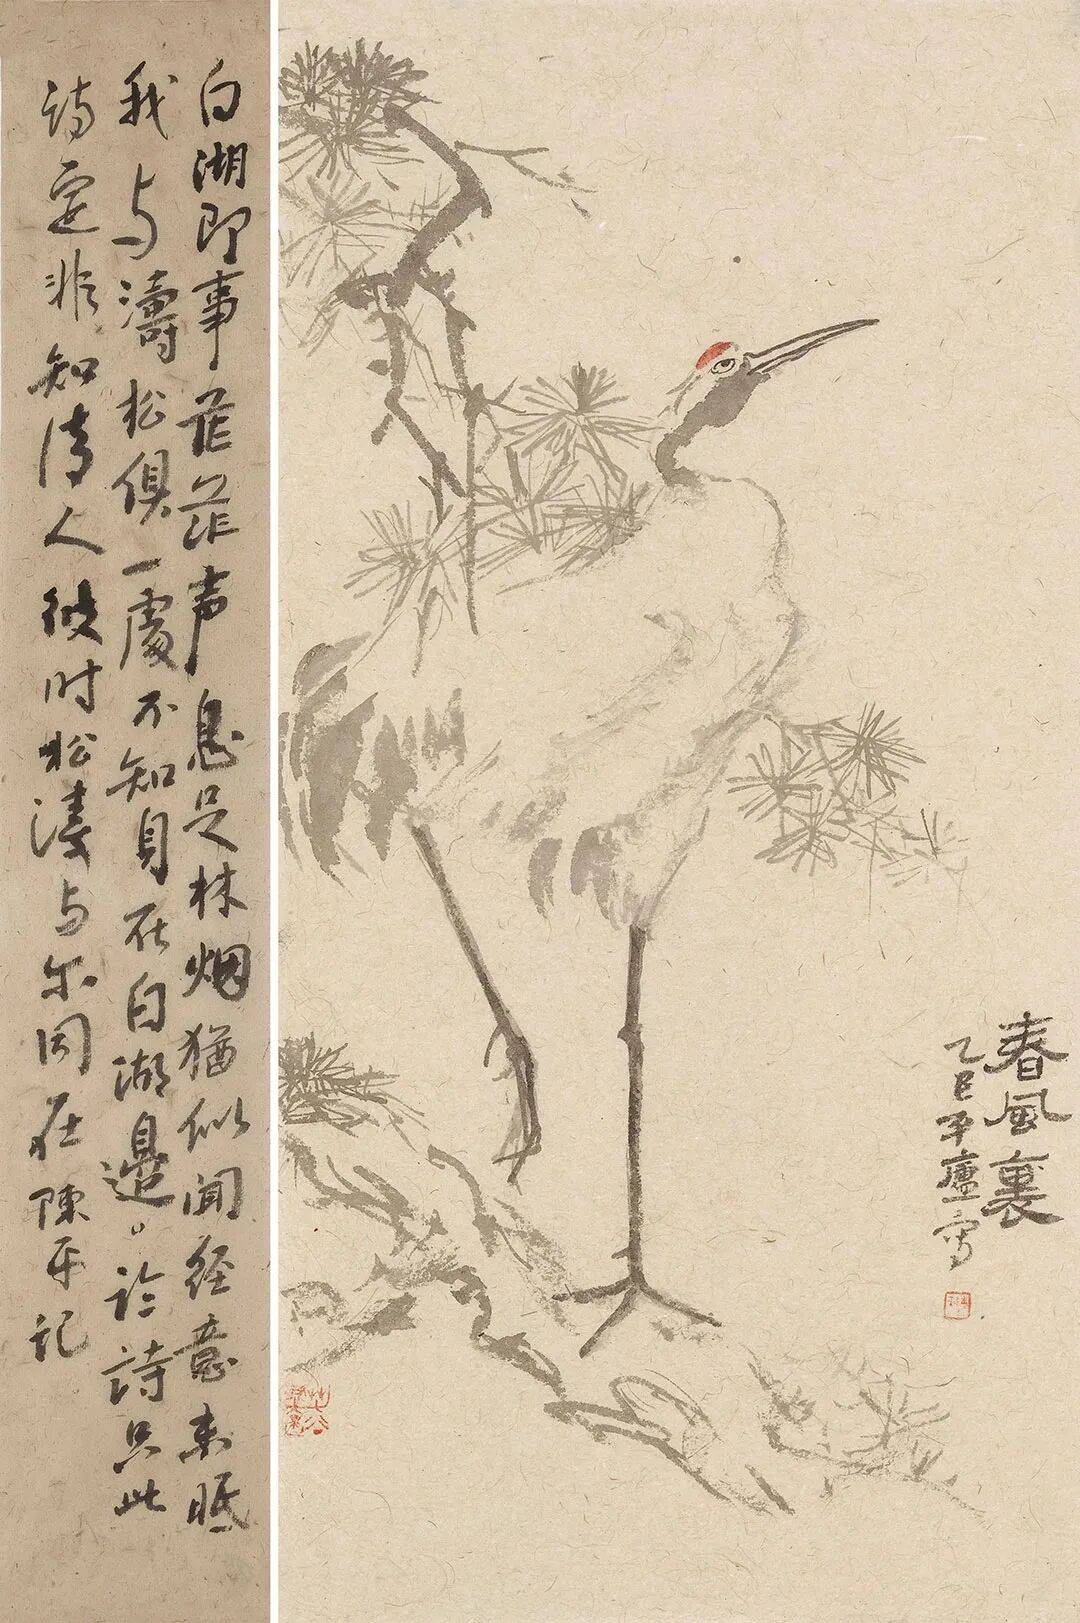 白湖即事茫茫声息足林烟猶似聞经意未眠
我与濤松俱一處不知身在白湖邊。论詩只此
诗定非知诗人彼时松涛与尔同在陳平记
春風裏
乙巳平廬写